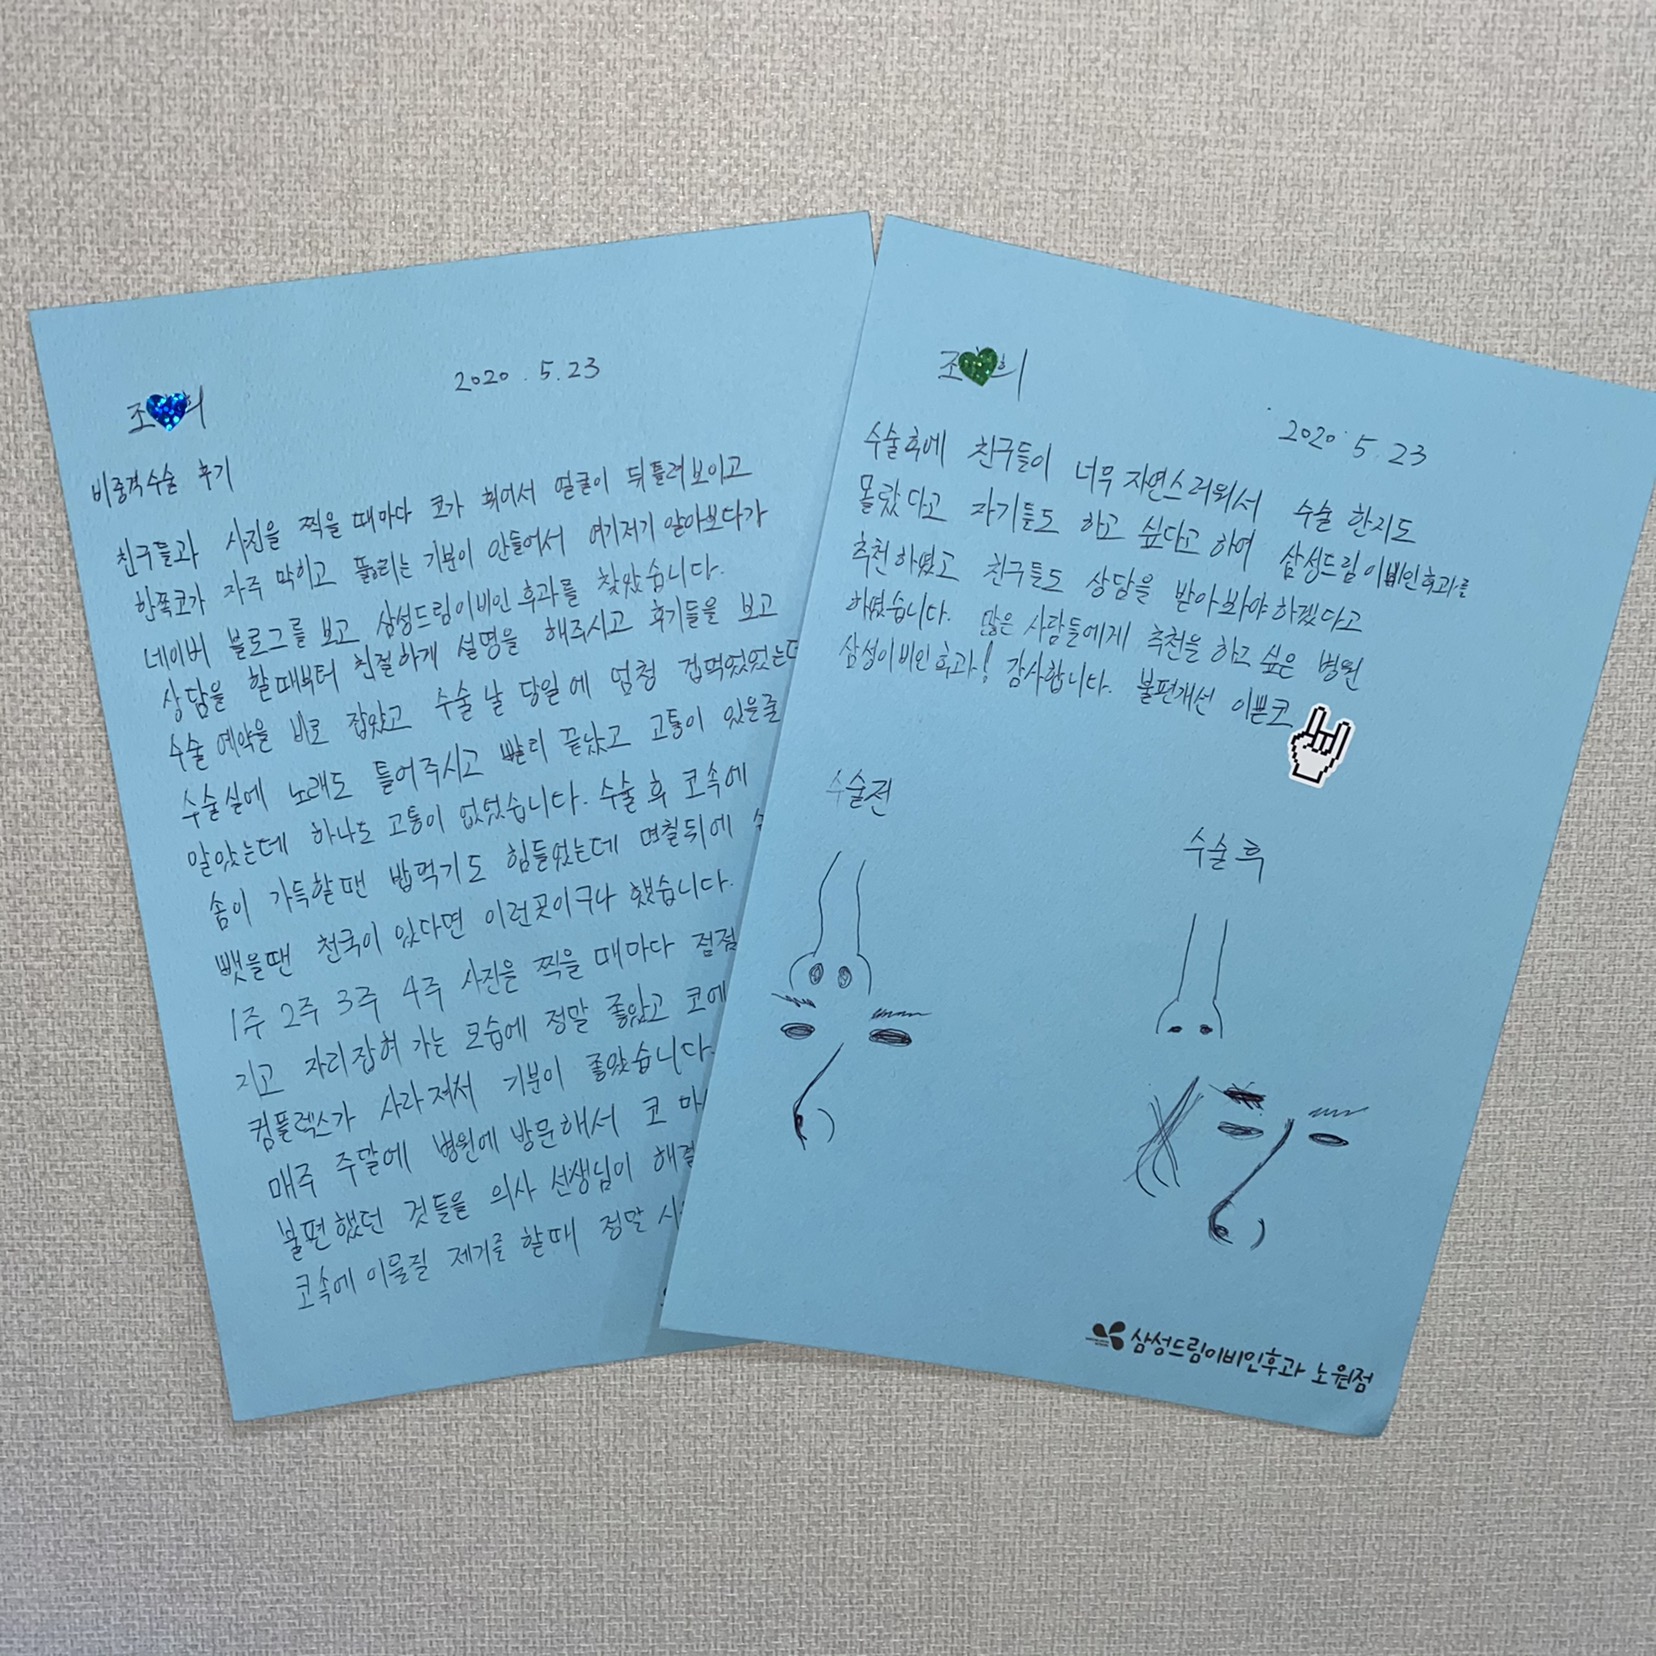 2020. 5. 23
조
비중격수술 후기
친구들과 사진을 찍을 때마다 코가 휘어서 얼굴이 뒤틀려보이고
한쪽코가 자주 막히고 뚫리는 기분이 안들어서 여기저기 알아보다가
네이버 블로그를 보고 삼성드림이비인후과를 찾았습니다.
상담을 할때부터 친절하게 설명을 해주시고 후기들을 보고
수술 예약을 바로 잡았고 수술 날 당일에 엄청 겁먹었었는데
수술실에 노래도 틀어주시고 빨리 끝났고 고통이 있을줄
알았는데 하나도 고통이 없었습니다. 수술 후 코속에
솜이 가득할땐 밥먹기도 힘들었는데 며칠뒤에
뺐을땐 천국이 있다면 이런곳이구나 했습니다.
1주 2주 3주 4주 사진을 찍을 때마다 점점
지고 자리잡혀 가는 모습에 정말 좋았고 코에
컴플렉스가 사라져서 기분이 좋았습니다.
매주 주말에 병원에 방문해서 코
불편했던 것들을 의사 선생님이 해결
코속에 이물질 제거를 할때 정말
조
2020. 5. 23
수술후에 친구들이 너무 자연스러워서 수술 한지도
몰랐다고 자기들도 하고 싶다고 하여 삼성드림이비인후과를
추천하였고 친구들도 상담을 받아봐야하겠다고
하였습니다. 많은 사람들에게 추천을 하고 싶은 병원
삼성이비인후과! 감사합니다. 불편개선 이쁜코
수술전
수술 후
삼성드림이비인후과 노원점